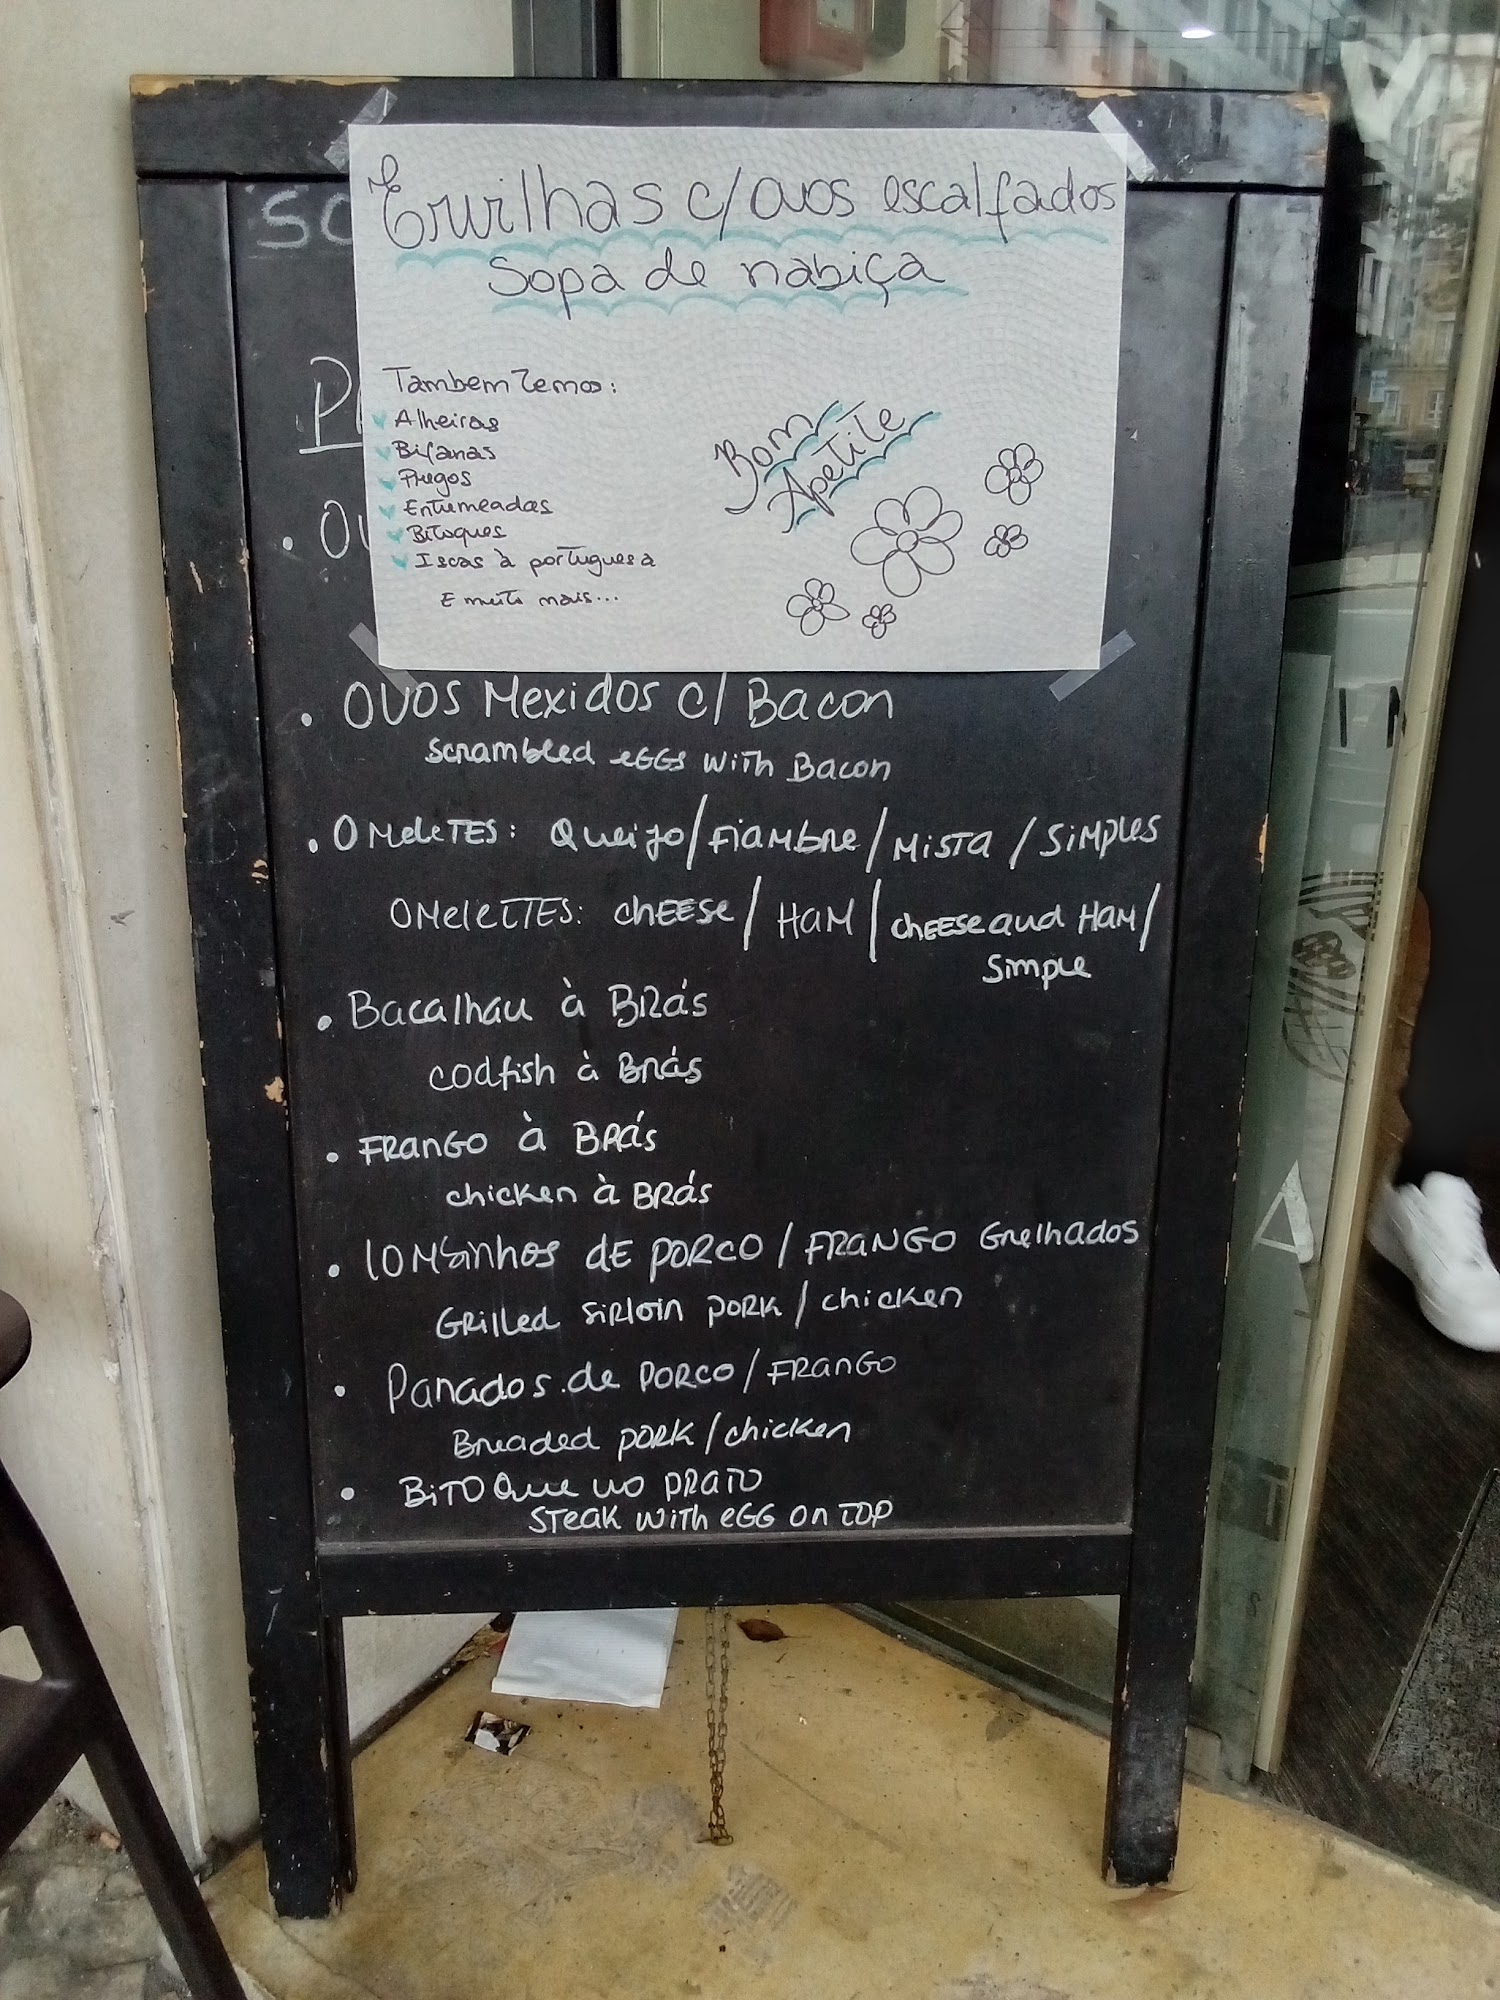 Ervilhas c/ovos escalfados
Sopa de nabiça
Tambem Temos:
Alheiras
Bifanas
Pregos
Entremeadas
Bitoques
Iscas à portuguesa
E muito mais...
Bom
Apetite
• OVOS Mexidos c/ Bacon
Scrambled eGGs with Bacon
• OMeleTES: Queijo/FiaMBRe/MISTA/SiMPLES
OMeleTTES: chEESe/HaM/chEESe and HaM/
Simple
• Bacalhau à BRás
codfish à BRás
• FRanGO à BRás
chicken à BRás
• lOMBinhos dE PORCO/FRANGO GRelhados
GRilled SiRloin PORK/chicken
• Panados de PORCO/FRanGO
BReaded PORK/chicken
• BiTOQue no PRaTO
STeaK with eGG on TOP